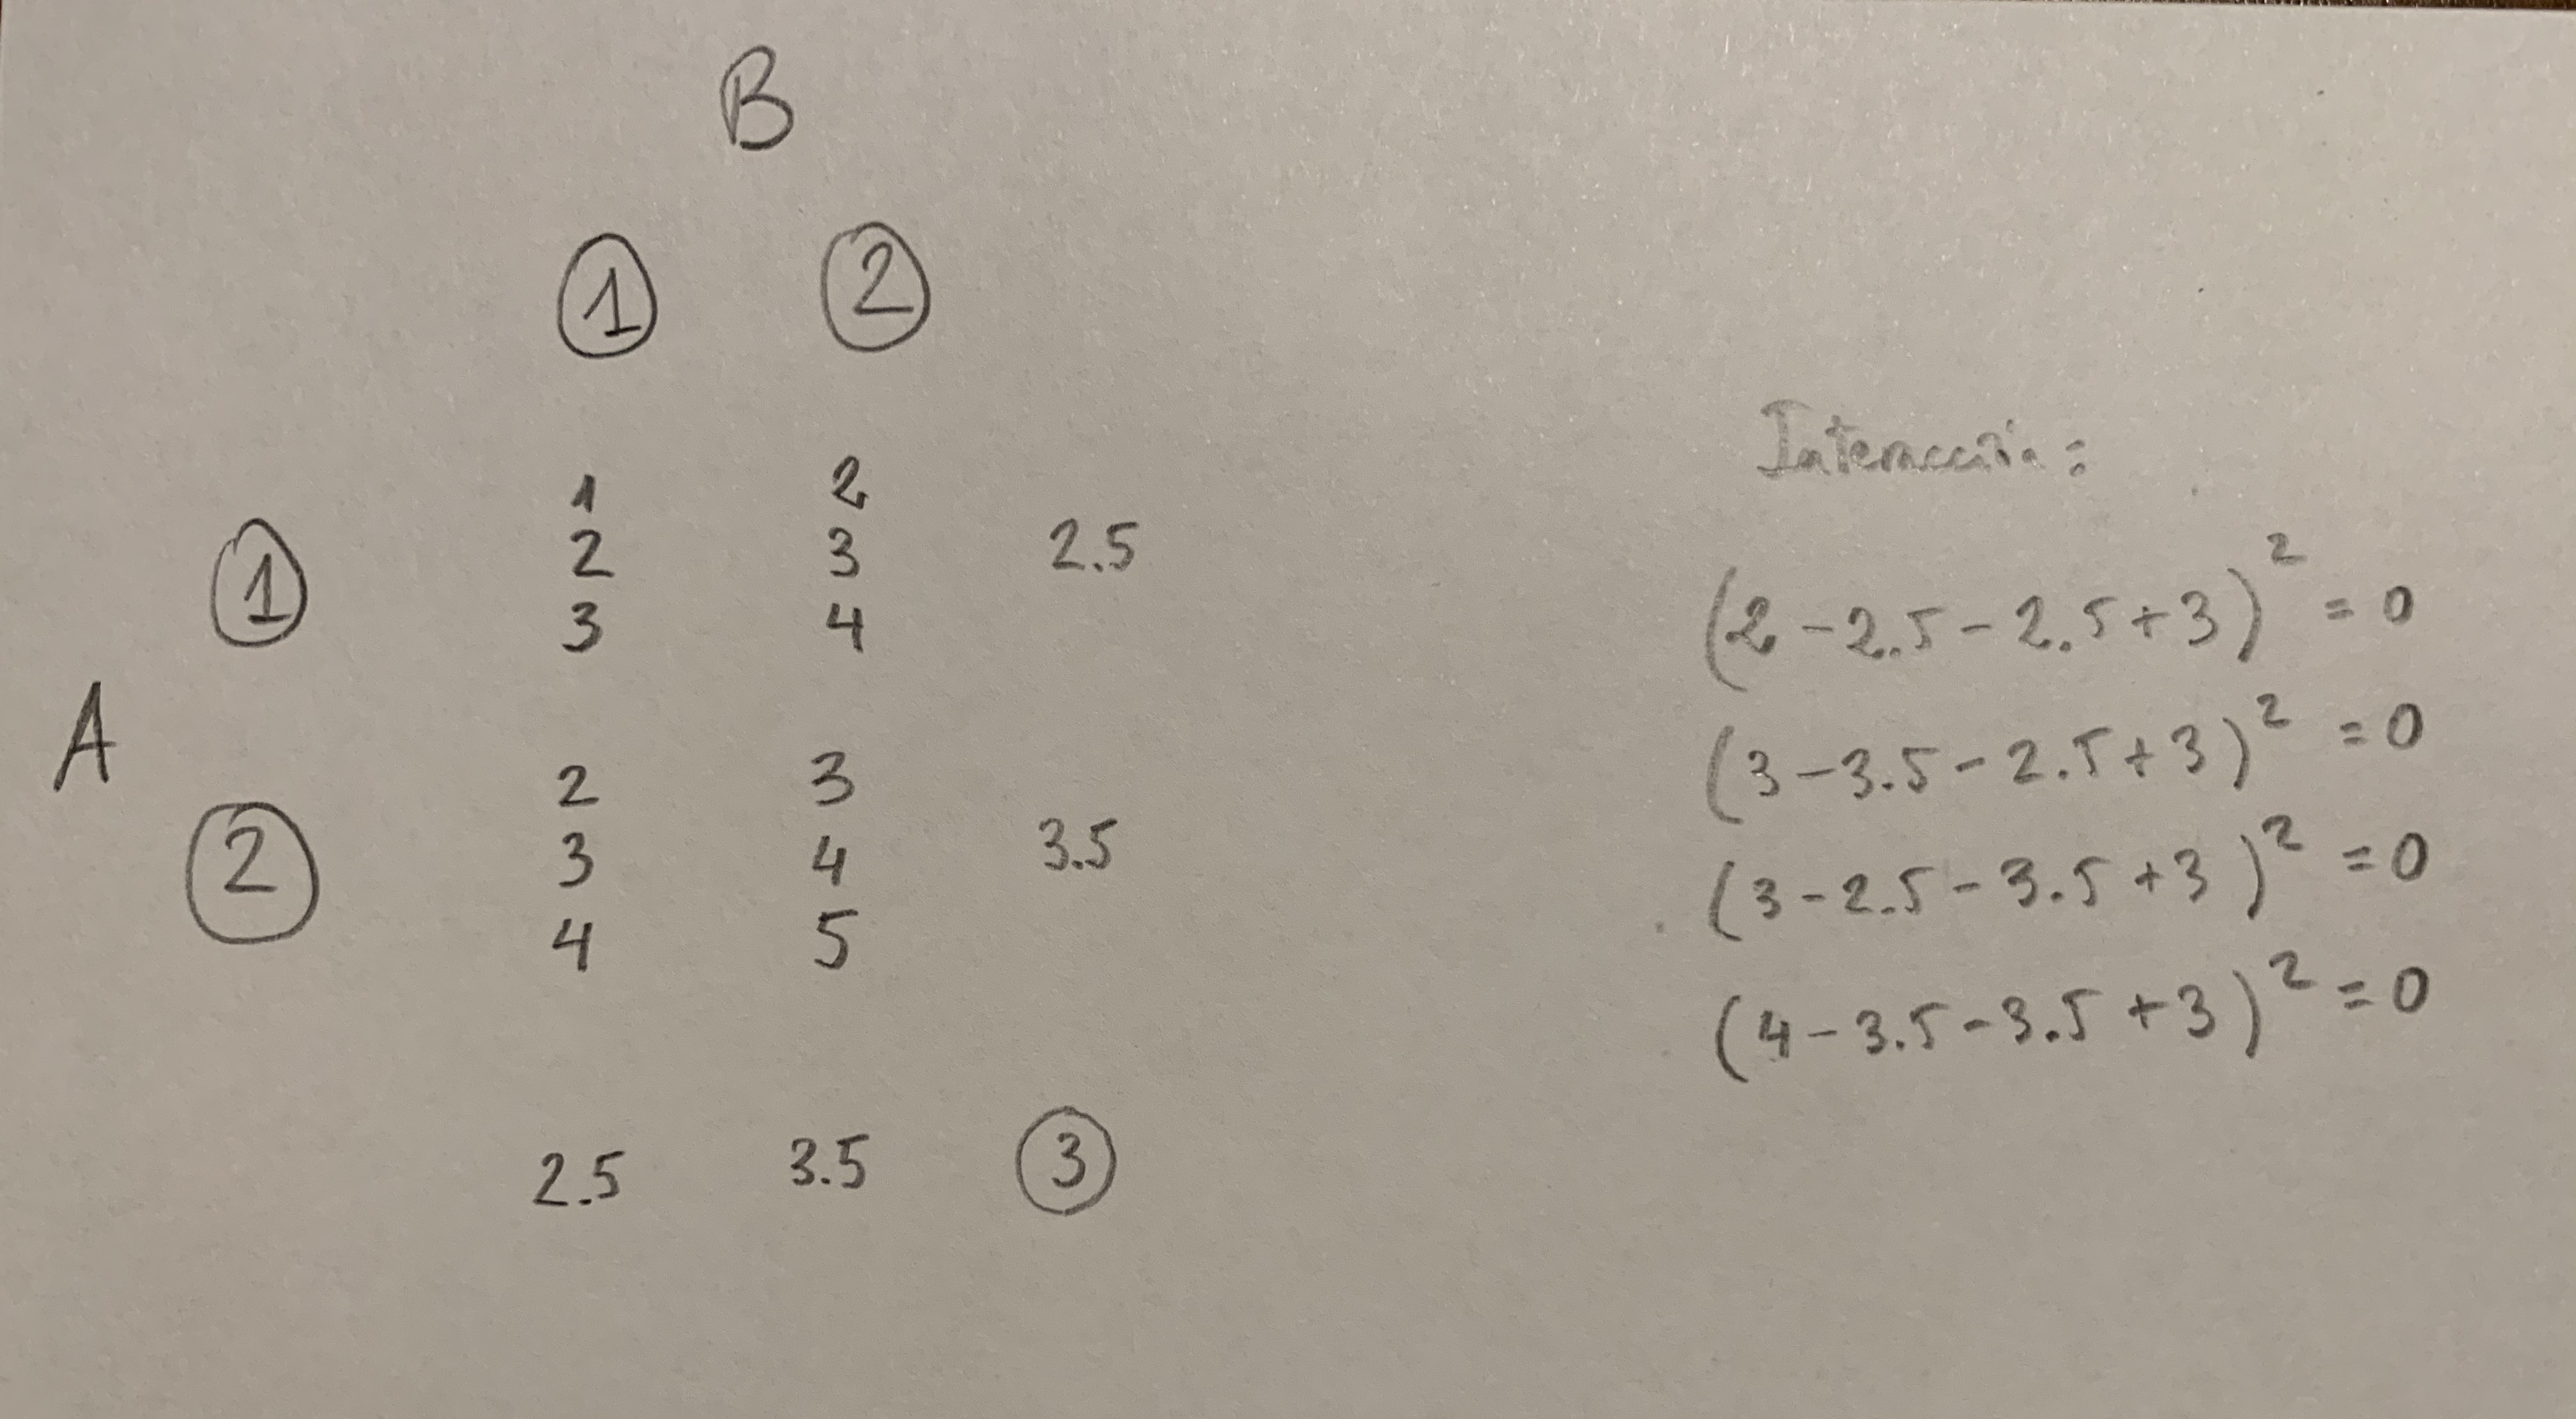 B
1 2
1 2
1 2 3 2.5
3 4
A
2 3
2 3 4 3.5
4 5
2.5 3.5 3
Interacción:
(2-2.5-2.5+3)² = 0
(3-3.5-2.5+3)² = 0
(3-2.5-3.5+3)² = 0
(4-3.5-3.5+3)² = 0